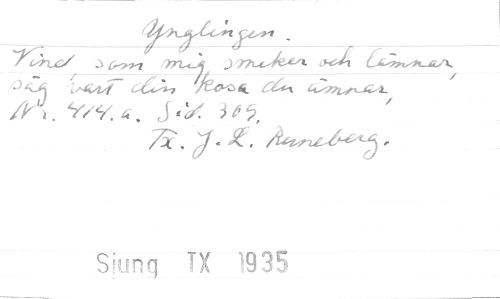 Ynglingen.
Vind, som mig smeker och lämnar,
säg vart din kosa du ämnar,
Nr. 414.a. Sid. 309.
Tx. J. L. Runeberg.
Sjung TX 1935